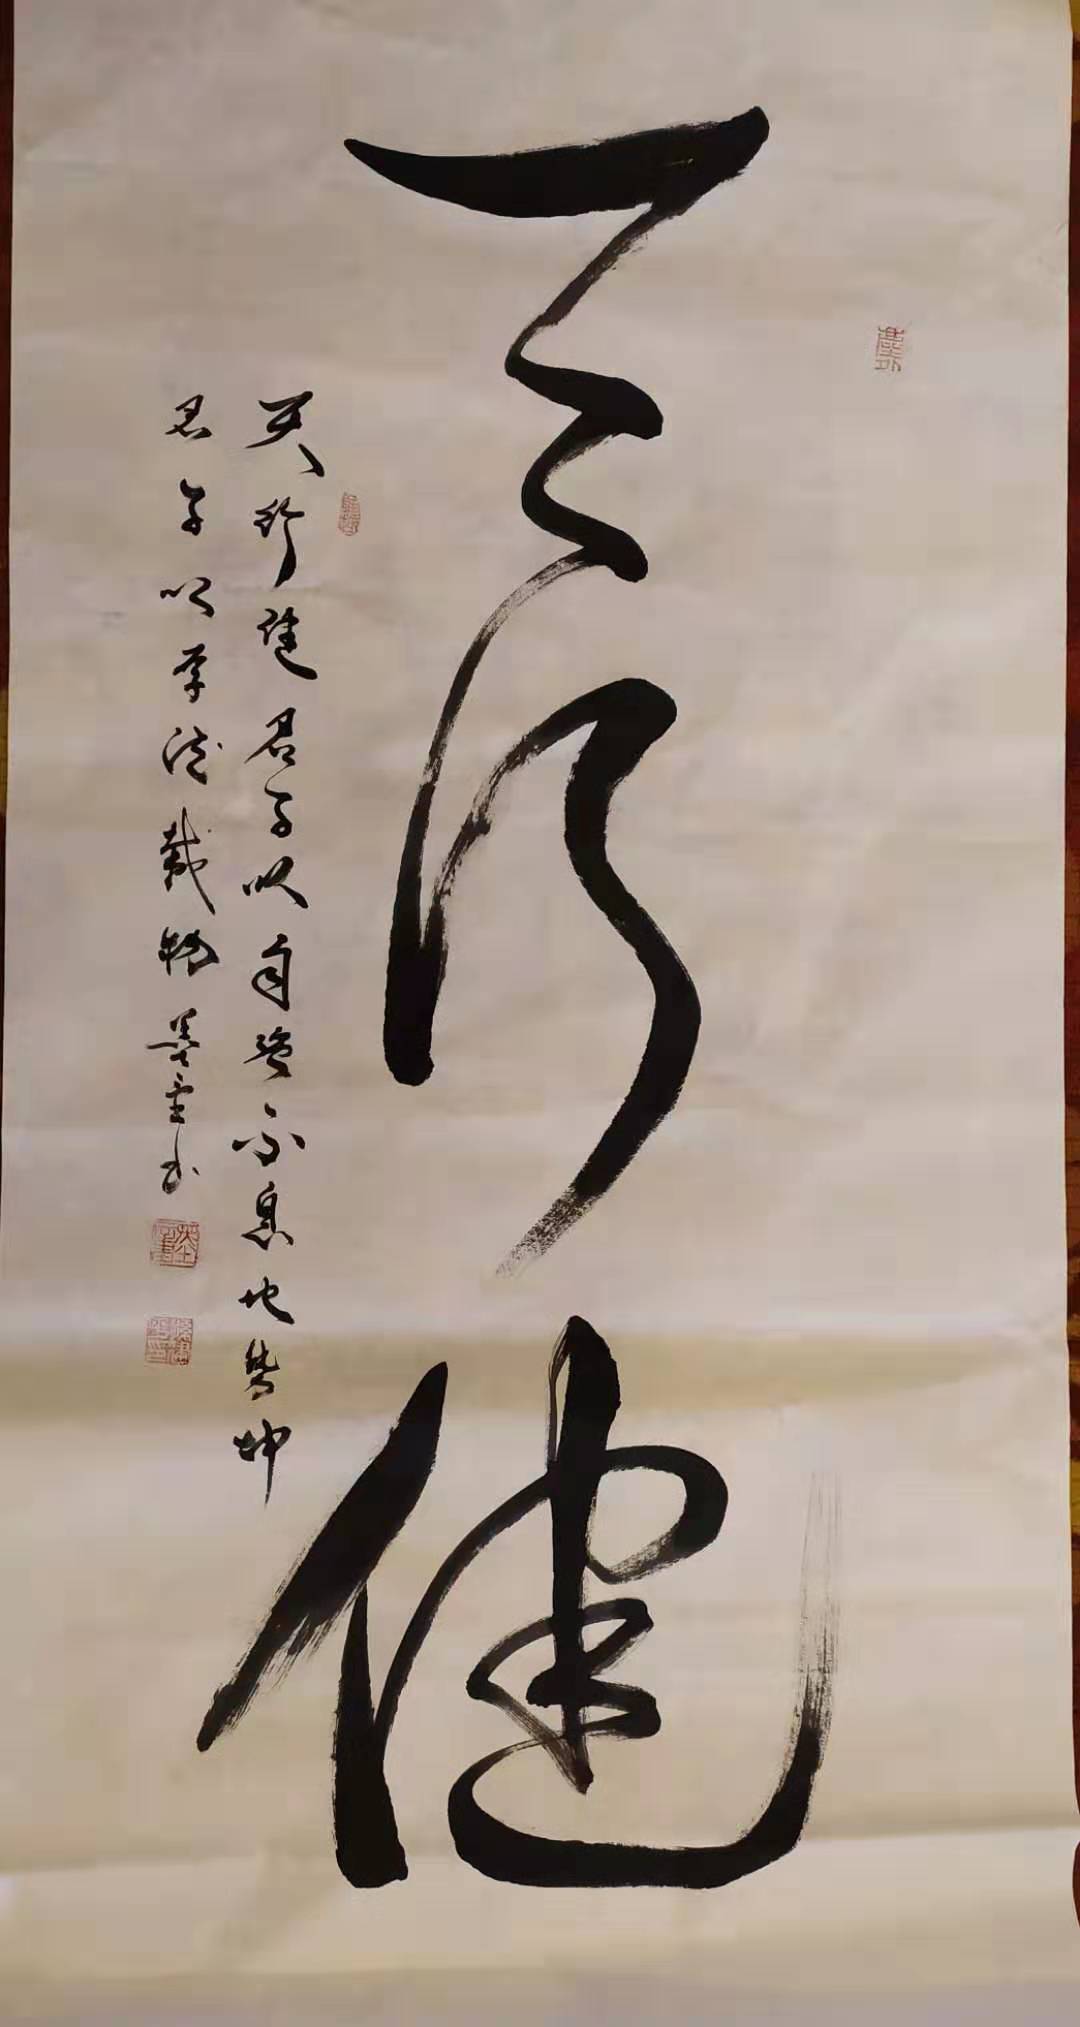 天行健
天行健君子以自强不息地势坤
君子以厚德载物墨雲书